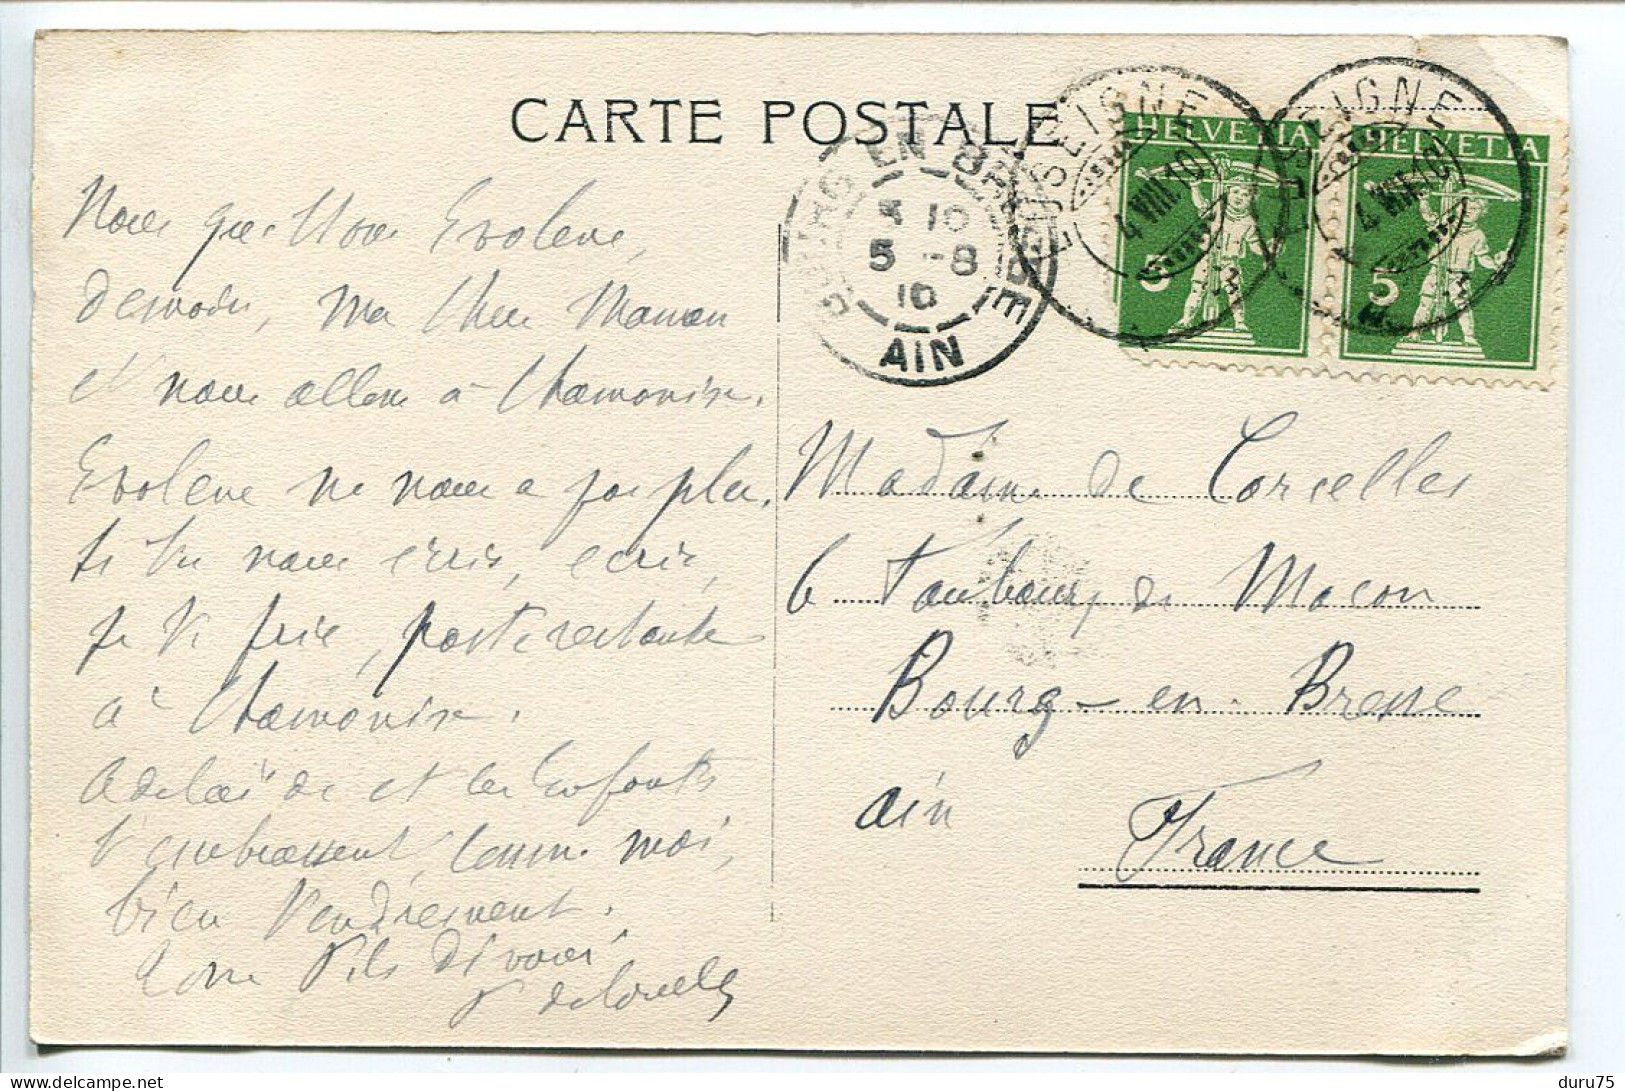 CARTE POSTALE
EUSEIGNE
4 VIII.10
HELVETIA
5
EUSEIGNE
4 VIII.10
HELVETIA
5
BOURG EN BRESSE
10
5 -8
10
AIN
Nous quittons Evolène
demain, ma chère Maman
et nous allons à Chamonix.
Evolène ne nous a pas plu.
Si tu nous écris, écris,
je te prie, poste restante
à Chamonix.
Adelaïde et les Enfants
t'embrassent, comme moi,
bien tendrement.
Ton fils dévoué
de Corcelles
Madame de Corcelles
6 Faubourg de Macon
Bourg-en-Bresse
Ain
France
duru75